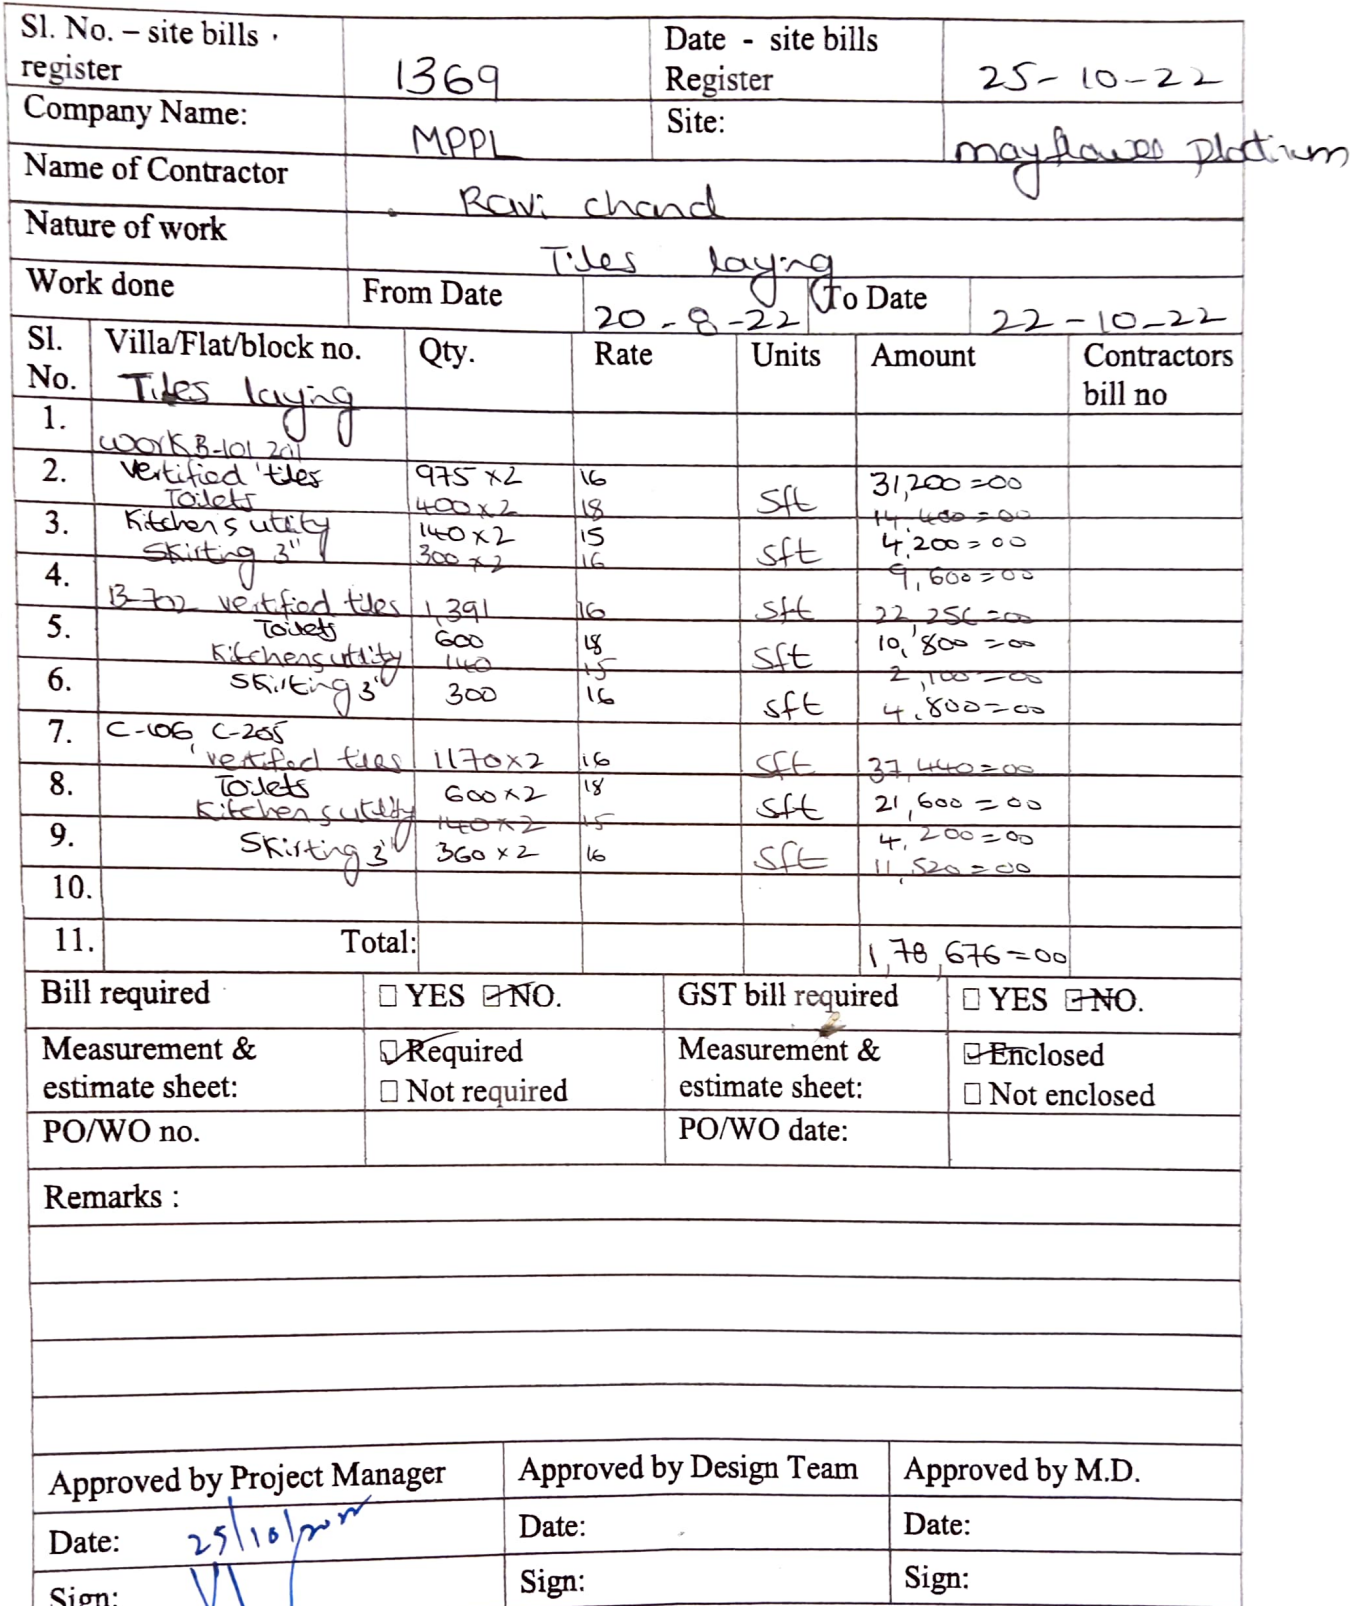 Sl. No. – site bills
register
1369
Date - site bills
Register
25-10-22
Company Name:
MPPL
Site:
mayflower platinum
Name of Contractor
Ravi chand
Nature of work
Tiles laying
Work done
From Date
20-8-22
To Date
22-10-22
Sl.
No.
Villa/Flat/block no.
Qty.
Rate
Units
Amount
Contractors
bill no
Tiles laying
1.
work B-101 201
2. vertified tiles 975 x 2 16 31,200=00
Toilets 400 x 2 18 Sft 14,400=00
3. Kitchen & utility 140 x 2 15 4,200=00
Skirting 3" 300 x 2 16 Sft 9,600=00
4. B-702 vertified tiles 1,391 16 Sft 22,256=00
5. Toilets 600 18 10,800=00
Kitchen & utility 140 15 Sft 2,100=00
6. Skirting 3" 300 16 Sft 4,800=00
7. C-106, C-205
vertified tiles 1170 x 2 16 Sft 37,440=00
8. Toilets 600 x 2 18 Sft 21,600=00
Kitchen & utility 140 x 2 15 4,200=00
9. Skirting 3" 360 x 2 16 Sft 11,520=00
10.
11. Total: 1,78,676=00
Bill required
☐ YES ☑ NO.
GST bill required
☐ YES ☑ NO.
Measurement &
estimate sheet:
☑ Required
☐ Not required
Measurement &
estimate sheet:
☑ Enclosed
☐ Not enclosed
PO/WO no.
PO/WO date:
Remarks :
Approved by Project Manager
Approved by Design Team
Approved by M.D.
Date: 25/10/2022
Date:
Date:
Sign:
Sign:
Sign: